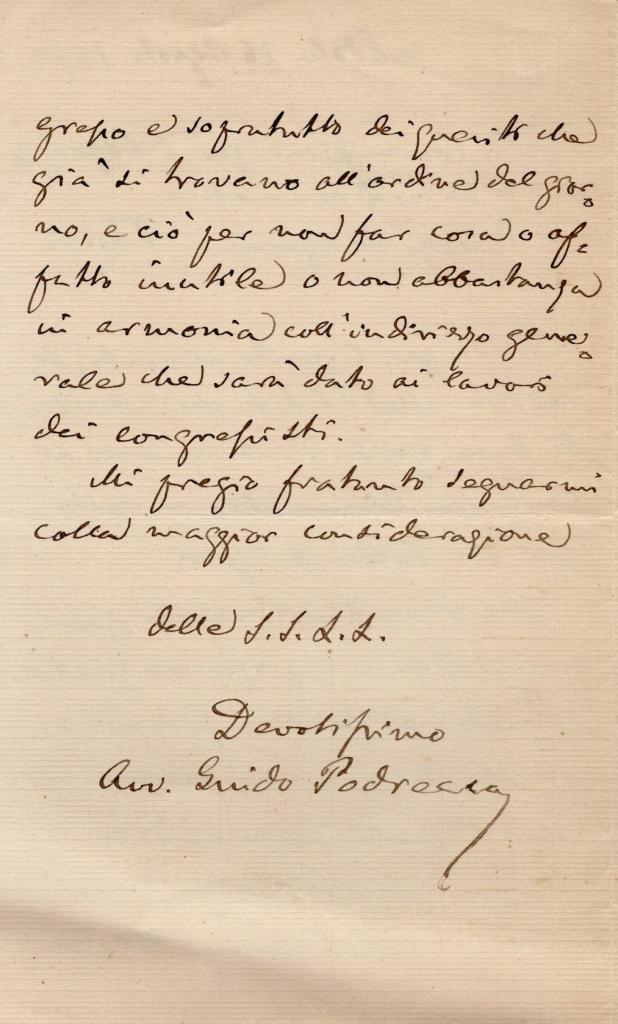 gresso e sopratutto dei quesiti che
già si trovano all'ordine del gior=
no, e ciò per non far cosa o af=
fatto inutile o non abbastanza
in armonia coll'indirizzo gene=
rale che sarà dato ai lavori
dei congressisti.
Mi pregio frattanto segnarmi
colla maggior considerazione
delle S.S. L.L.
Devotissimo
Avv. Guido Podrecca